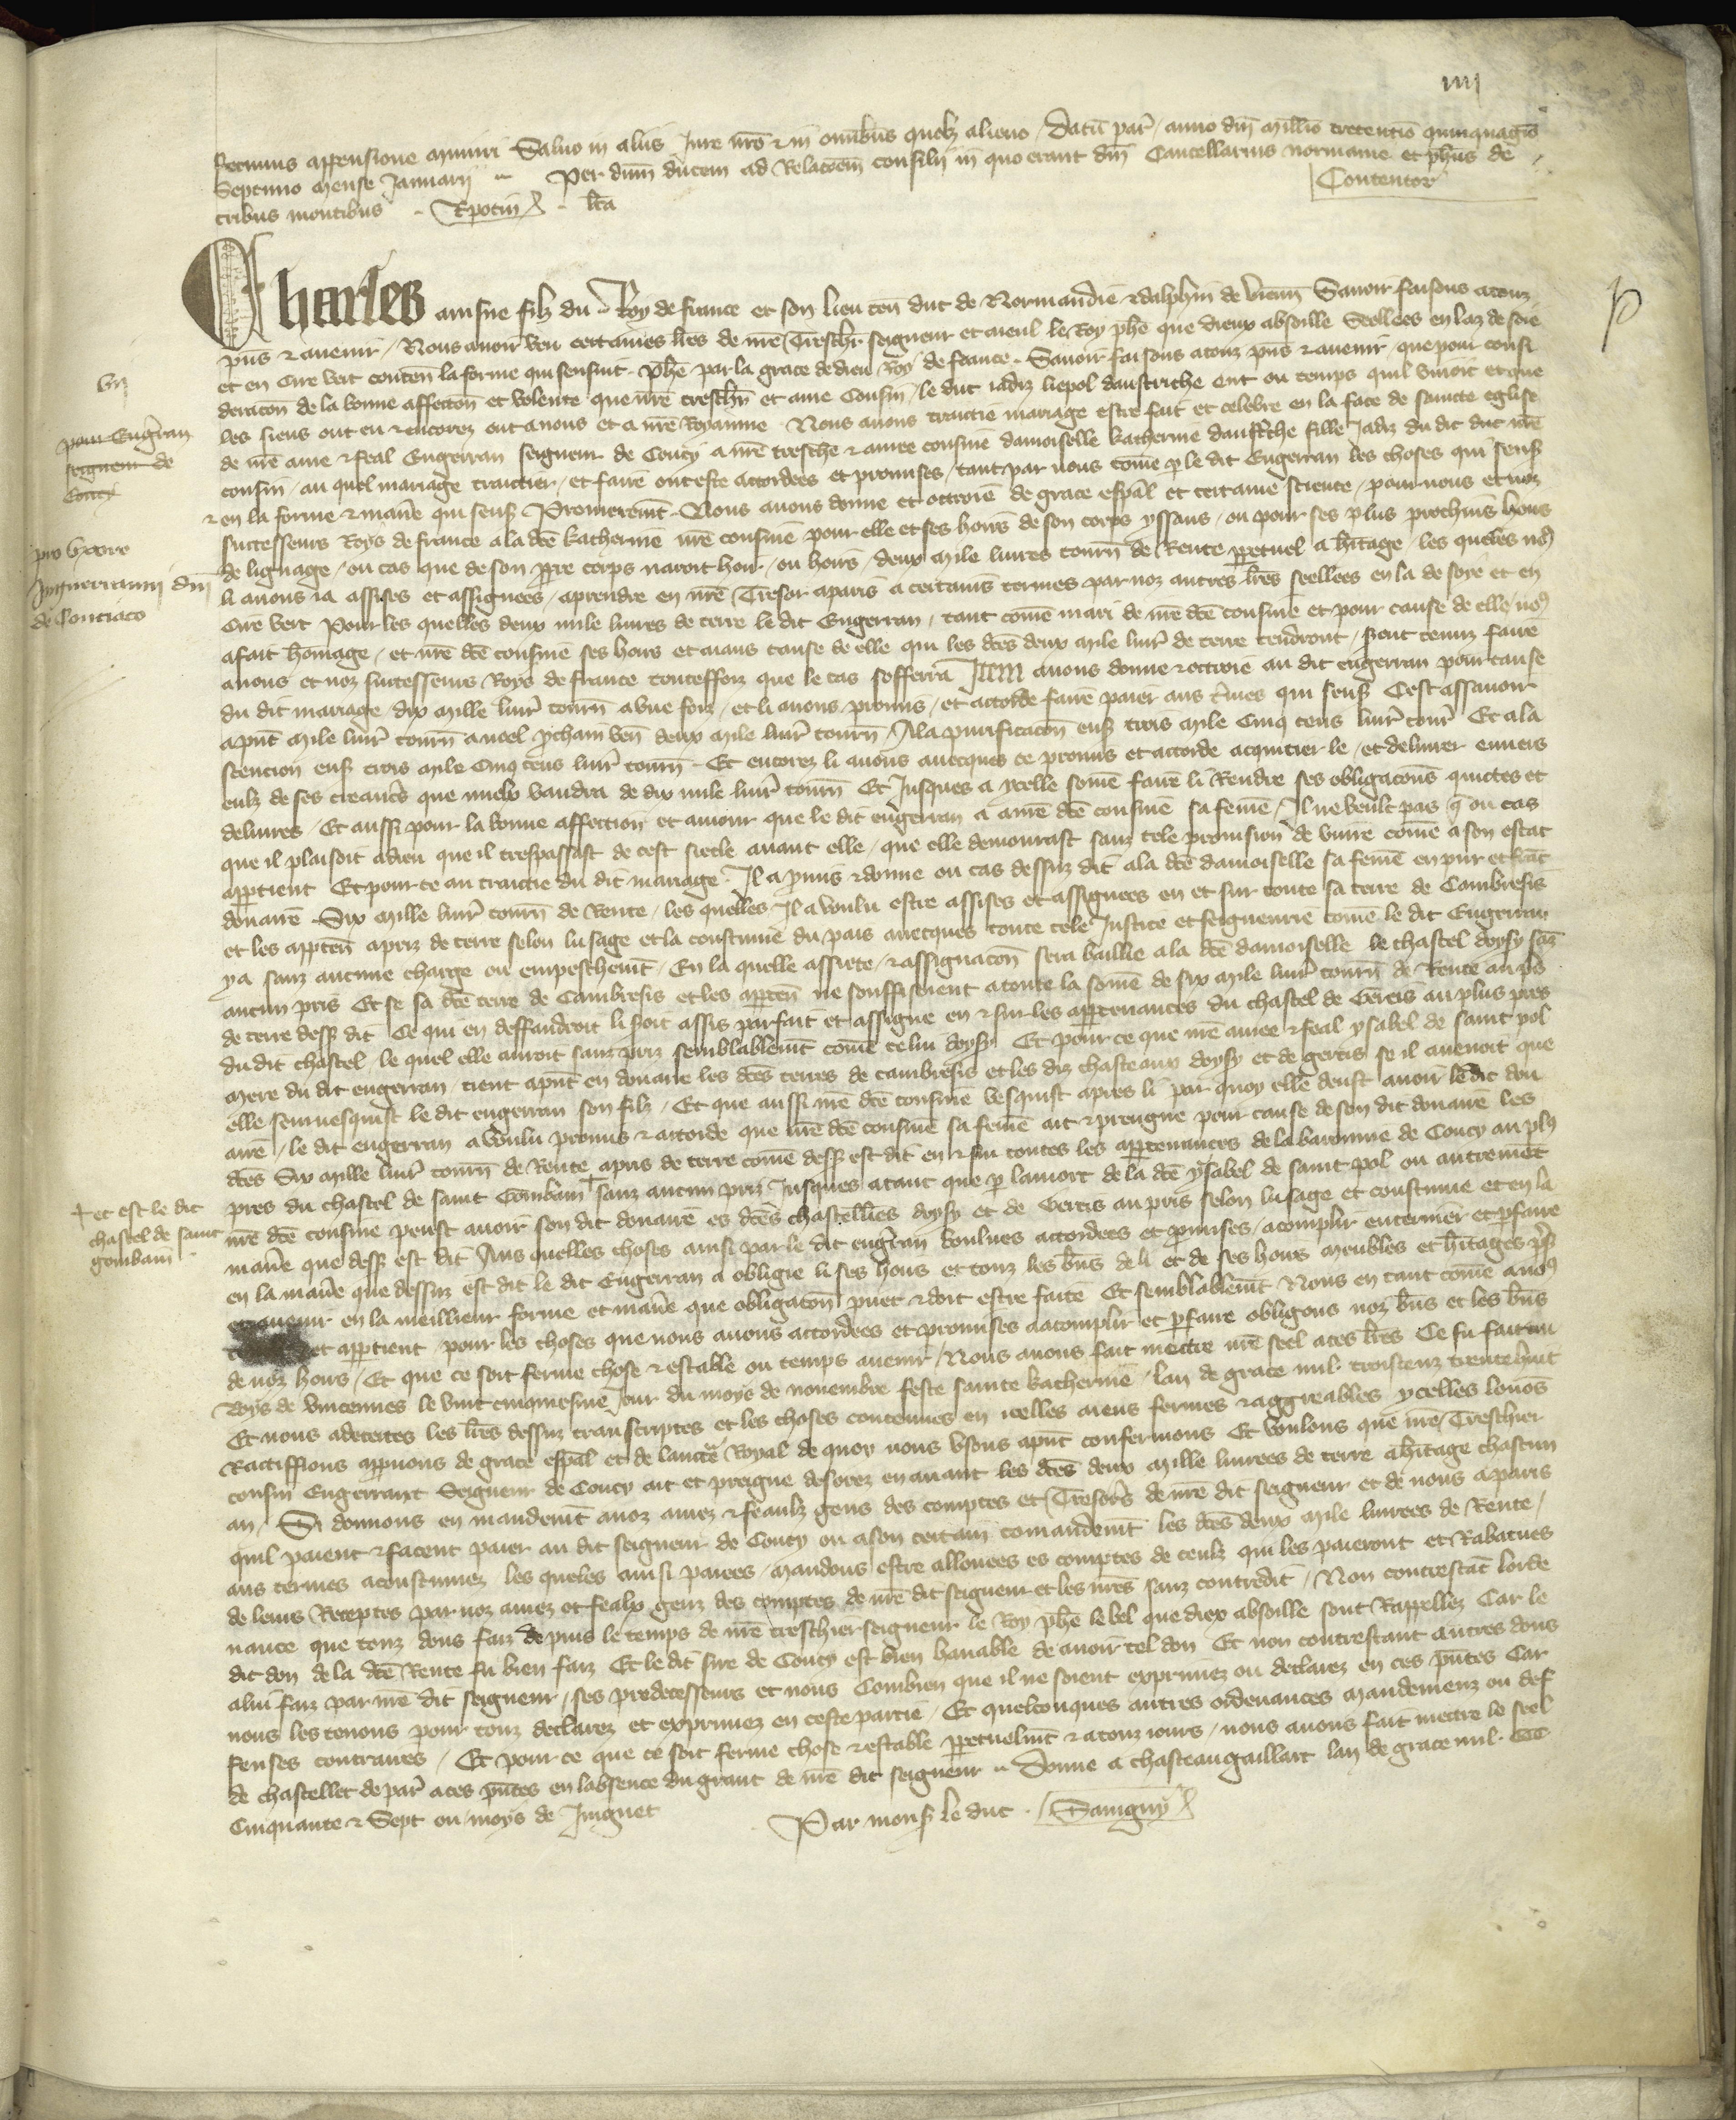 iiij
fecimus appensione muniri Salvo in aliis Jure nrō & in omnibus quolz alieno / Datū par̄ / anno dnī millīo trecentīo quinquagīo
Septimo mense Januarii ~ Per dnm ducem ad Relacōem consilii in quo erant dnī Cancellarius normanie et phūs de
tribus montibus . R potin . lcā Contentor
Charles ainsne filz du Roy de france et son lieu ten duc de Normandie & dalphin de vienn Savoir faisons a touz
pns & avenir / Nous avoir veu certaines lres de nrē Treschr seigneur et aieul le Roy phē que dieux absoille Seellees en laz de soie
et en cire vert conten la forme qui sensuit . Phē par la grace de dieu roy de france . Savoir faisons a touz pns & avenir / que pour consi
deracōn de la bonne affeccōn et volente que nrē treschr et ame Cousin / le duc iadiz liepol daustriche ont ou temps quil vivoit et que
les siens ont eu & encorez ont a nous et a nrē Royaume Nous avons traictie mariage estre fait et celebre en la face de saincte eglise
de nrē ame & feal Engerran seigneur de Coucy a nrē treschr & amee cousine damoiselle katherine daustriche fille Jadiz du dit duc nrē
cousin / au quel mariage traictier / et faire ont este accordees et promises / tant par nous come p le dit Engerran les choses qui sens
& en la forme & maniē qui sens Premieremt . Nous avons donne et ottroie de grace espāl et certaine science / pour nous et noz
successeurs Roys de france a la dcē katherine nrē cousine pour elle et ses hoirs de son corps yssans / ou pour ses plus prochains hoirs
de lignage / ou cas que de son ppre corps navroit hoir / ou hoirs / deux mile livres tourn de Rente ppetuel a hitage / les queles no9
li avons ia assises et assignees / a prendre en nrē Tresor a paris a certains termes par noz autres lres seellees en laz de soye et en
cire vert Pour les quelles deux mile livres de terre le dit Engerran / tant come mari de nrē dcē cousine et pour cause de elle / no9
a fait homage / et nrē dcē cousine ses hoirs et aians cause de elle qui les dcēs deux mile livr de terre tendront / sont tenuz faire
a nous et noz successeurs Roys de france toutesfoiz que le cas sofferra Item avons donne & ottroie au dit engerran pour cause
du dit mariage / dix mille livr tourn a une foiz / et li avons promis / et accorde faire paier aus tmes qui sens Cest assavoir
a pnt mile livr tourn a noel pchain ven deux mile livr tourn / A la purificacōn ens trois mile Cinq cens livr tour Et a la
scencion ens trois mile Cinq cens livr tourn . Et encorez li avons avecques ce promis et accorde acquitier le / et delivrer envers
eulz de ses creancēs que mielx vaudra de dix mile livr tourn Et Jusques a ycelle some faire li Rendre ses obligacōns quictes et
delivres / Et aussi pour la bonne affection et amour que le dit engerran a a nrē dcē cousine sa feme / Il ne veult pas q ou cas
que il plaisoit a dieu que il trespassast de cest siecle avant elle / que elle demourast sanz tele provision de vivre come a son estat
appartient Et pour ce au traictie du dit mariage . Il a pmis & donne ou cas dessuz dit a la dcē damoiselle sa feme en pur et franc
douaire Six mille livr tourn de Rente / les quelles Il a voulu estre assises et assignees en et sur toute sa terre de Cambresis
et les apptēn a priz de terre selon lusage et la coustume du pais avecques toute tele Justice et seigneurie come le dit Engerran
y a sanz aucune charge ou empeschemt / En la quelle assiete / & assignacōn sera baillie a la dcē damoiselle le chastel doysy sanz
aucun pris Et se sa dcē terre de Cambresis et les apptēn ne souffisoient a toute la some de six mile livr tourn de Rente au pris
de terre dess dit Ce qui en deffaudroit li soit assis parfait et assigne en & sur les appartenances du chastel de Gercis au plus pres
du dit chastel / le quel elle auroit sanz priz semblablemt come celui doysy Et pour ce que nrē amee & feal ysabel de saint pol
mere du dit engerran / tient a pnt en douaire les dcēs terres de cambresis et les diz chasteaux doysy et de gercis se il avenoit que
elle seurvesquist le dit engerran son filz / Et que aussi nrē dcē cousine vesquist apres li par quoy elle deust avoir le dit dou
aire / le dit engerran a voulu promis & accorde que nrē dcē cousine sa feme ait & preugne pour cause de son dit douaire les
dcēs Six mille livr tourn de Rente a pris de terre come dess est dit en & sur toutes les appartenances de la baronnie de Coucy au pl9
pres du chastel de saint Gombain + sanz aucun priz Jusques a tant que p la mort de la dcē ysabel de saint pol ou autremēt
nrē dcē cousine peust avoir son dit douaire es dcēs chastelliēs doysy et de Gercis au pris selon lusage et coustume et en la
maniē que dess est dit Aus quelles choses ainsi par le dit engerran voulues accordees et pmises / acomplir enteriner et pfaire
en la maniē que dessuz est dit le dit Engerran a obligie li ses hoirs et touz les bns de li et de ses hoirs meubles et hitages pns
et avenir en la meilleur forme et maniē que obligacōn puet & doit estre faite Et semblablemt Nous en tant come a no9
et appartient / pour les choses que nous avons accordees et promises a acomplir et pfaire obligons noz bns et les bns
de noz hoirs / Et que ce soit ferme chose & estable ou temps avenir / Nous avons fait mectre nrē seel a ces lres Ce fu fait au
Boys de vincennes le vint cinquiesme Jour du moys de novembre feste sainte katherine / lan de grace mil. troiscenz trentehuit
Et nous adecertes les lres dessuz transcriptes et les choses contenues en icelles aiens fermes & aggreables ycelles loudōs
Ractiffions appvons de grace espāl et de laucte Royal de quoy nous usons a pnt confermons Et voulons que nrē Treschier
cousin Engerrant Seigneur de Coucy ait et preigne desorez en avant les dcēs deux mille livrees de terre a hitage chascun
an / Si donnons en mandemt a noz amez & feaulz gens des comptes et Tresorrs de nrē dit seigneur et de nous a paris
quil paient & facent paier au dit seigneur de Coucy ou a son certain comandemt les dcēs deux mile livrees de Rente /
aus termes acoustumez les queles ainsi paiees / mandons estre allouees es comptes de ceulz qui les paieront et Rabatues
de leurs Receptes par noz amez et fealx genz des comptes de nrē dit seigneur et les nres sanz contredit / Non contrestāt lorde
nance que touz dons faiz depuis le temps de nrē treschier seigneur le Roy phē le bel que diex absoille sont Rappellez Car le
dit don de la dcē Rente fu bien faiz Et le dit sire de Coucy est bien havable de avoir tel don Et non contrestant autres dons
a lui faiz par nrē dit seigneur / ses predecesseurs et nous Combien que il ne soient exprimez ou declarez en ces pntes Car
nous les tenons pour touz declarez et exprimez en ceste partie / Et quelconques autres ordenances mandemenz ou def
fenses contraires / Et pour ce que ce soit ferme chose & estable ppetuelmt & a touz iours / nous avons fait mectre le seel
de chastellet de par a ces pntes en labsence du grant de nrē dit seigneur ~ Donne a chasteaugaillart lan de grace mil. CCC
Cinquante & Sept ou moys de Juignet Par mons le duc . Savigny
p
vij
pour Engerran
seigneur de
Coucy
pro uxore
Ingerranni dni
de Couciaco
+ et est le dit
chastel de saint
gombain